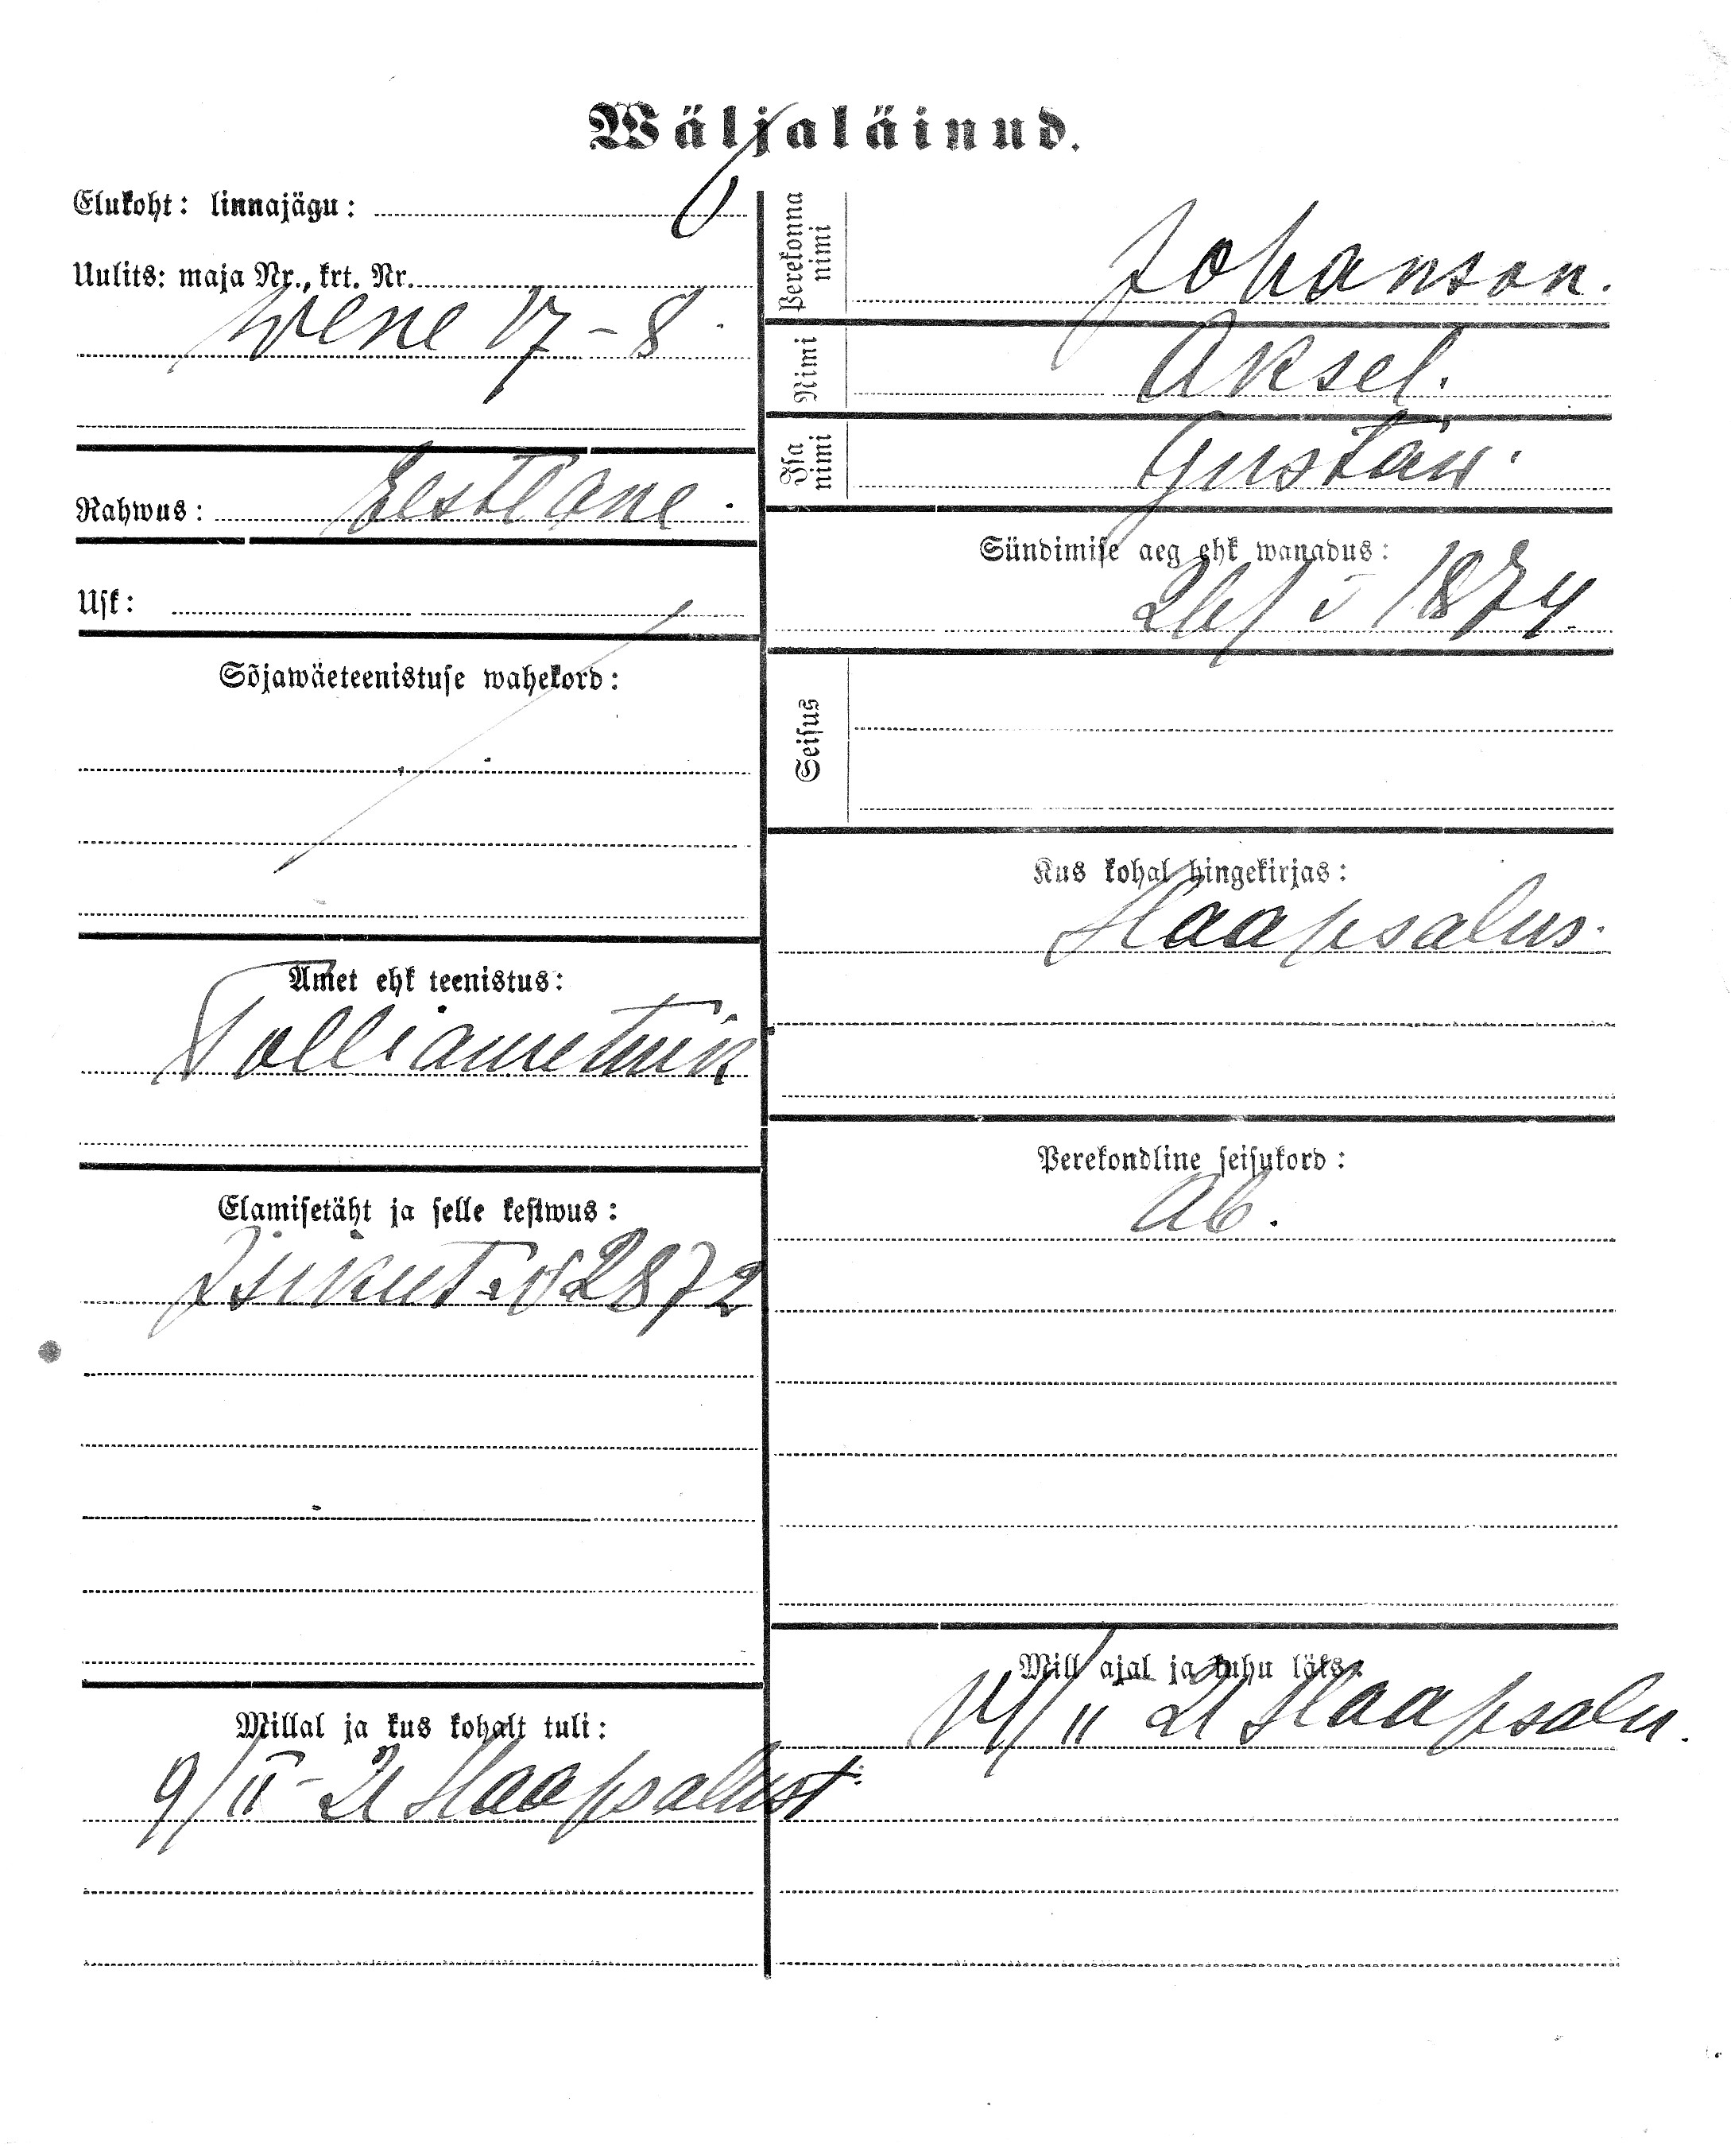 Wäljaläinud.
Elukoht: linnajägu:
Uulits: maja Nr., krt. Nr.
Wene 17-8.
Rahwus: Eestlane.
Usk:
Sõjawäeteenistuse wahekord:
Amet ehk teenistus:
Tolliametnik
Elamisetäht ja selle kestwus:
Isikut. № 2872
Millal ja kus kohalt tuli:
9/II-21 Haapsalust.
Perekonna nimi
Johanson.
Nimi
Aksel.
Isa nimi
Gustaw.
Sündimise aeg ehk wanadus:
26/ 1874.
Seisus
Kus kohal hingekirjas:
Haapsalus.
Perekondline seisukord:
Ab.
Mill ajal ja kuhu läks:
14/II 21 Haapsalu.